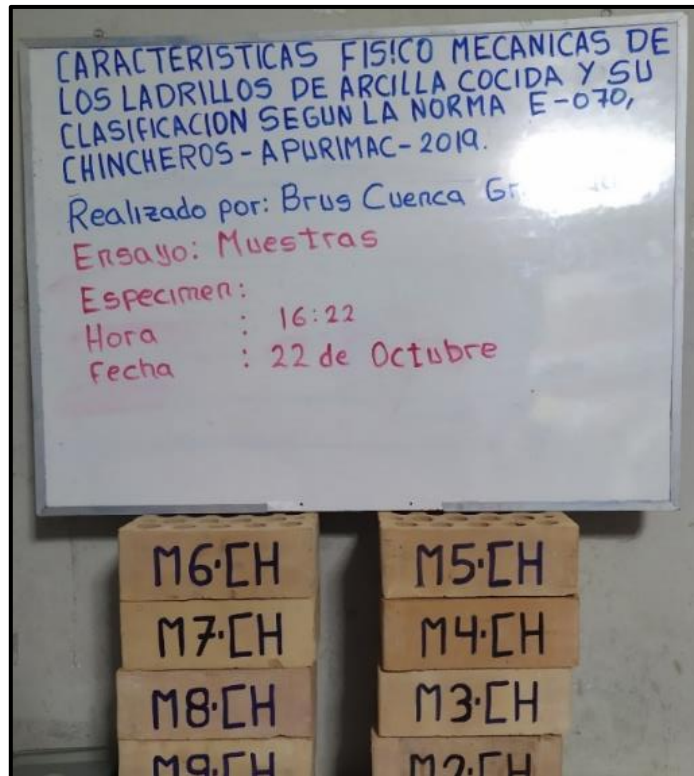 CARACTERISTICAS FISICO MECANICAS DE
LOS LADRILLOS DE ARCILLA COCIDA Y SU
CLASIFICACION SEGUN LA NORMA E-070,
CHINCHEROS-APURIMAC-2019.
Realizado por: Brus Cuenca
Ensayo: Muestras
Especimen:
Hora : 16:22
Fecha : 22 de Octubre
M6·CH M5·CH
M7·CH M4·CH
M8·CH M3·CH
M9·CH M2·CH